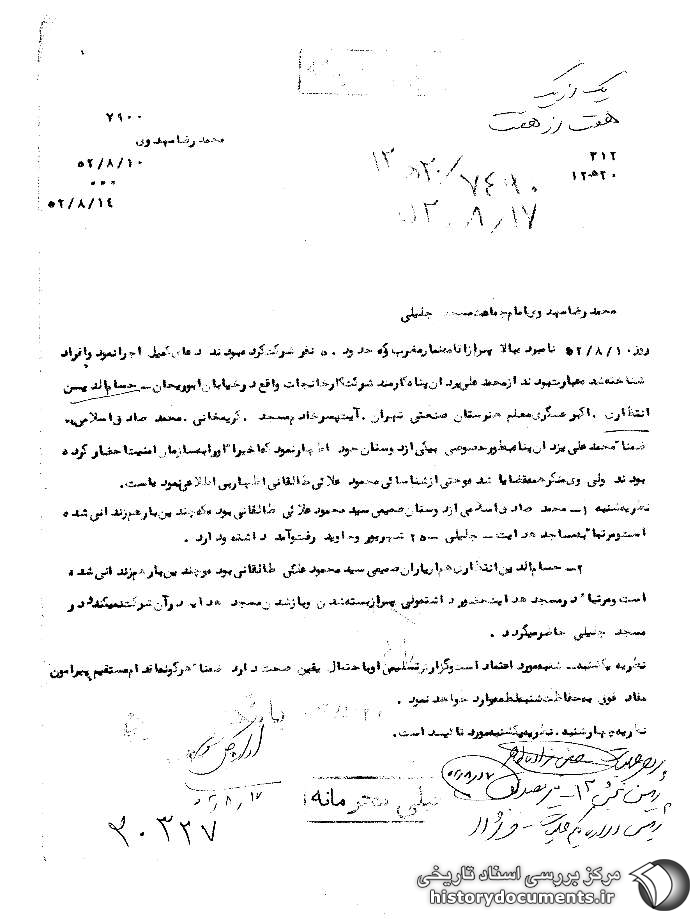 یک از یک
هفت از هفت
۷۹۰۰
محمد رضا مهدوی
۵۲/۸/۱۰
۵۲/۸/۱۴
۳۱۲
۱۲۵۲۰
۱۷
محمد رضا مهدوی امام جماعت مسجد جلیلی
روز ۵۲/۸/۱۰ نامبرده بالا پس از اقامه نماز مغرب که حدود ۵۰ نفر شرکت کرده بودند دعای کمیل اجرا نمود و افراد
شناخته شده عبارت بودند از محمد علی یزدان پناه کارمند شرکت کارخانجات واقع در خیابان ابوریحان - حسام الدین
انتظاری. اکبر عسگری معلم هنرستان صنعتی تهران. آیت پسر خادم مسجد. کریمخانی. محمد صادق اسلامی
ضمنا" محمد علی یزدان پناه بطور خصوصی بیکی از دوستان خود اظهار نمود که اخیرا" او را به سازمان امنیت احضار کرده
بودند ولی وی منکر همه قضایا شده و حتی از شناسائی محمود علائی طالقانی اظهار بی اطلاعی نموده است.
نظریه شنبه ۱- محمد صادق اسلامی از دوستان صمیمی سید محمود علائی طالقانی بوده که چندین بار هم زندانی شده
است و مرتبا" به مساجد هدایت - جلیلی - ۲۵ شهریور و جاوید رفت و آمد داشته و دارد.
۲- حسام الدین انتظاری هم از یاران صمیمی سید محمود علائی طالقانی بوده و چندین بار هم زندانی شده
است و مرتبا" در مسجد هدایت حضور داشته ولی پس از بسته شدن و باز شدن مسجد هدایت در آن شرکت نمیکند و در
مسجد جلیلی حاضر میگردد.
نظریه یکشنبه - شنبه مورد اعتماد است و گزارش تسلیمی او با احتمال یقین صحت دارد ضمنا" هر گونه اقدام مستقیم پیرامون
مفاد فوق به حفاظت شنبه لطمه وارد خواهد نمود.
نظریه چهارشنبه. نظریه یکشنبه مورد تائید است.
خیلی محرمانه
۳۰۳۲۷
مرکز بررسی اسناد تاریخی
historydocuments.ir